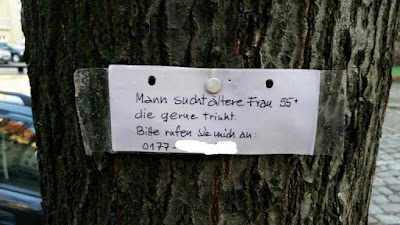 Mann sucht ältere Frau 55+
die gerne trinkt.
Bitte rufen Sie mich an:
0177-